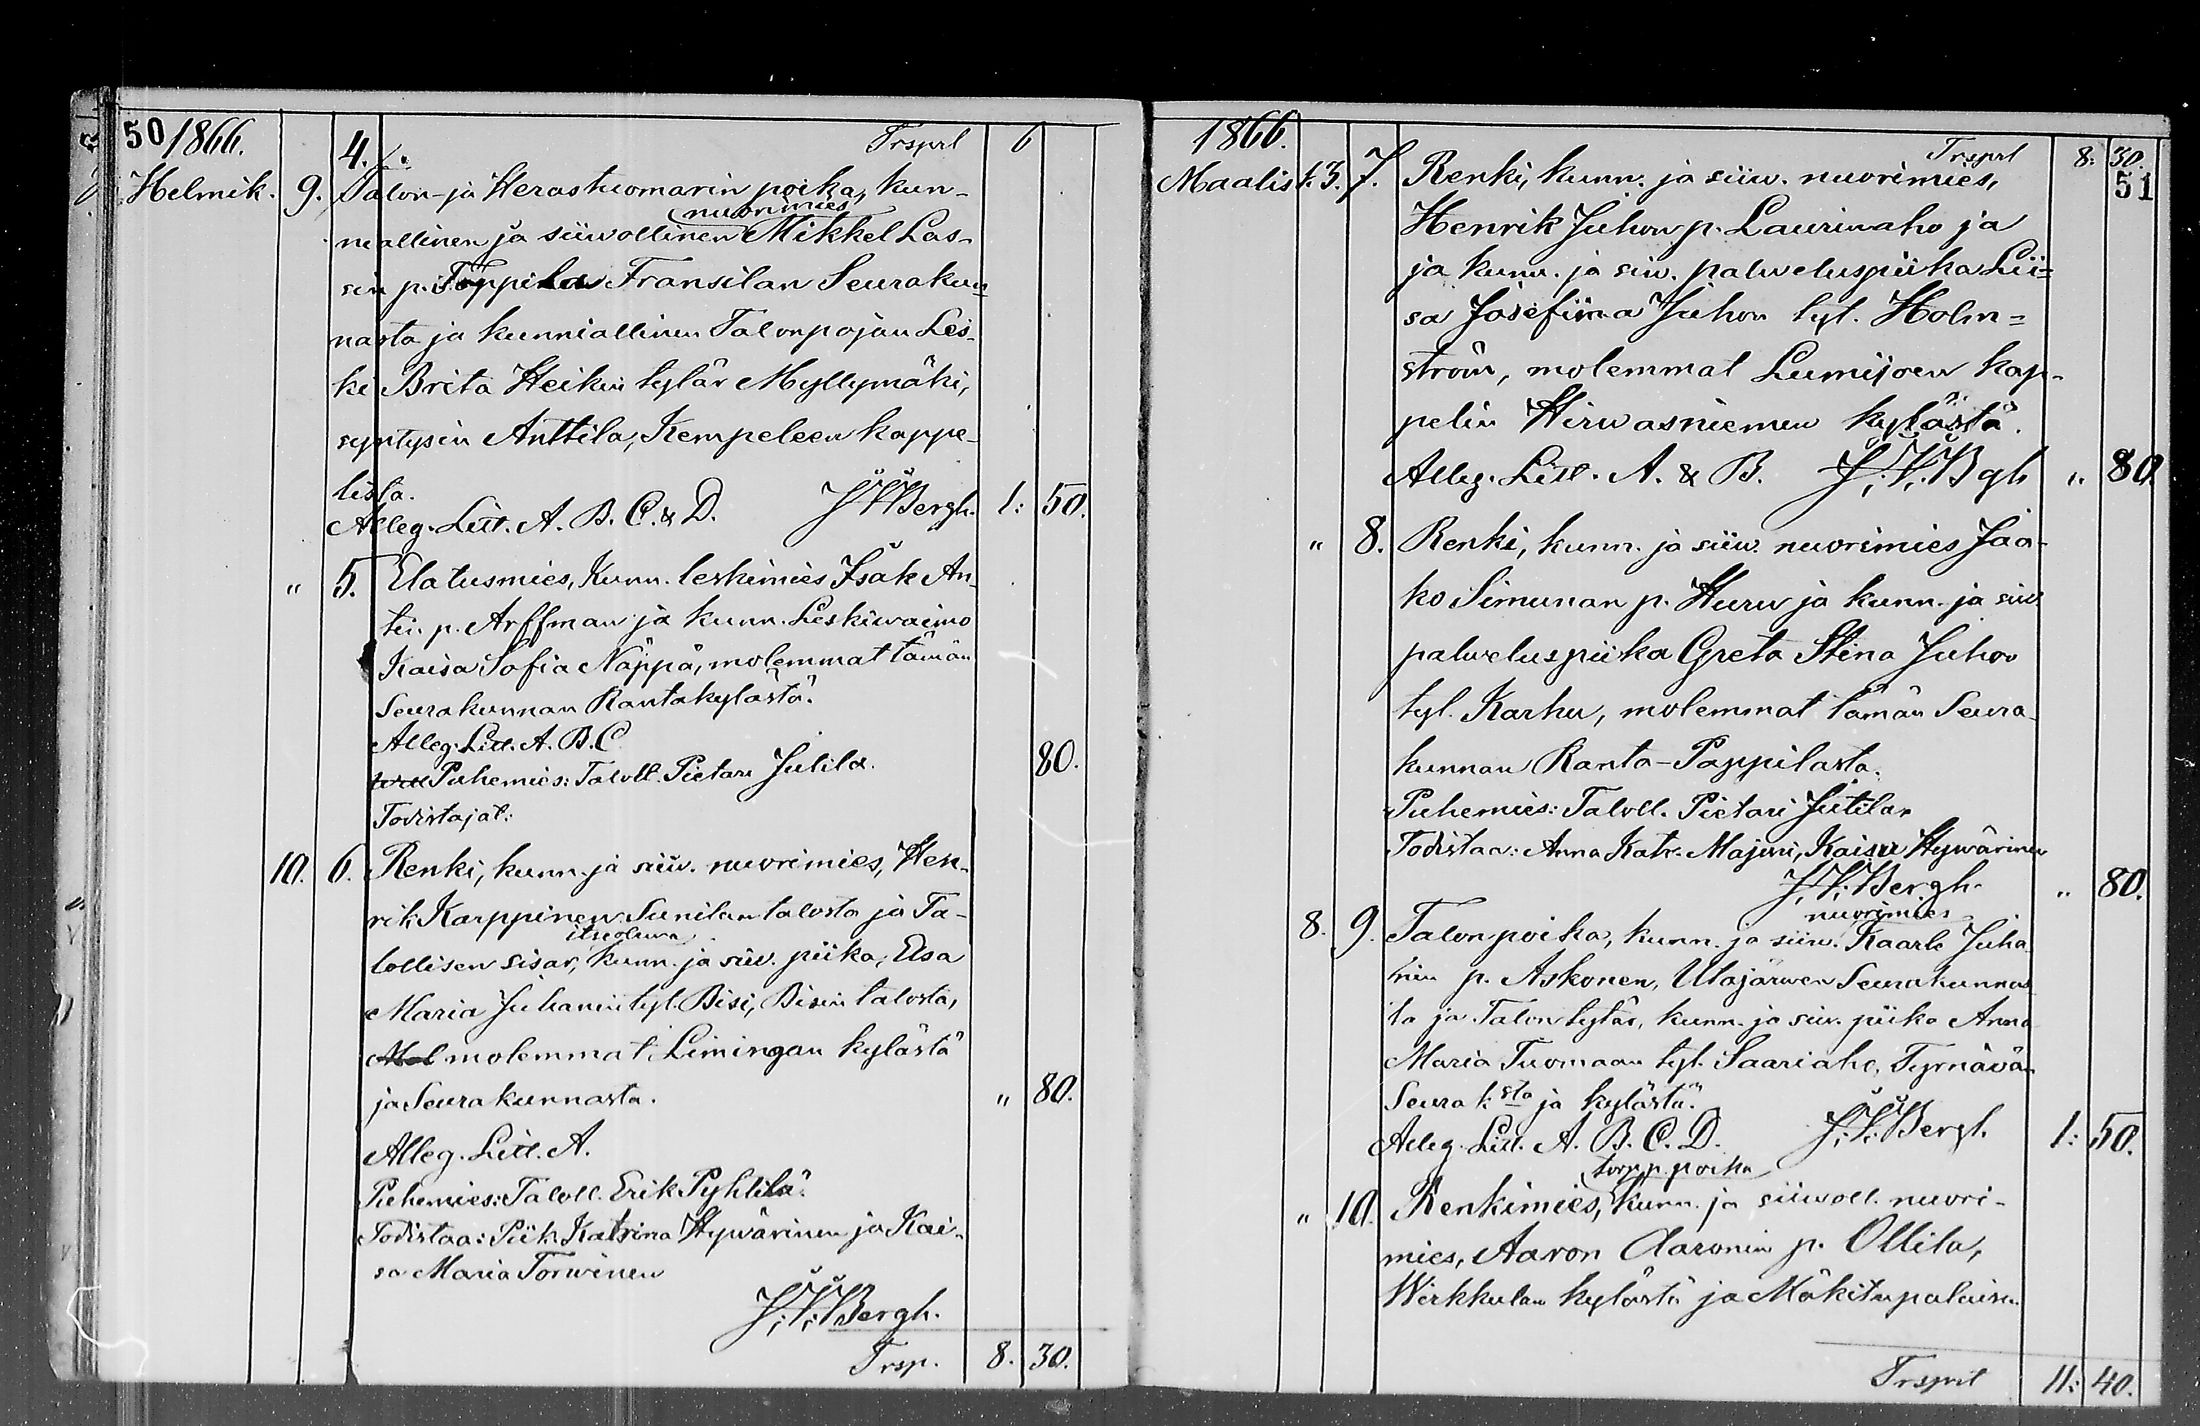 50 1866. 4. Trsprt 6
Helmik. 9. Talon- ja Herastuomarin poika, kun-
nuorimies
niallinen ja siiwollinen Mikkel Las-
sin p. Töppilä Fransilan Seurakun-
nasta ja kunniallinen Talonpojan Les-
ki Brita Heikin tytär Myllymäki,
syntysin Anttila, Kempeleen kappe-
lista.
Alleg. Litt. A. B. C. & D. J. V. Bergh. 1: 50.
" 5. Elatusmies, Kunn. leskimies Isak An-
tin p. Arffman ja kunn. Leskiwaimo
Kaisa Sofia Näppä, molemmat tämän
Seurakunnan Rantakylästä.
Alleg. Litt. A. B. C
Puhemies: Taloll. Pietari Jutila. 80.
Todistajat:
10. 6. Renki, kunn. ja siiw. nuorimies, Hen-
rik Karppinen Sunilan talosta ja Ta-
itseoleva
lollisen sisar, kunn. ja siiw. piika, Elsa
Maria Juhanin tyt. Bisi, Bisin talosta,
Mol molemmat Limingan kylästä
ja Seurakunnasta. " 80.
Alleg. Litt. A.
Puhemies: Taloll. Erik Pyhtilä.
Todistaa: Piik. Katrina Hywärinen ja Kai-
sa Maria Torwinen
J. V. Bergh.
Trsp. 8. 30.
1866. Trsprt 8: 30.
51
Maalisk. 3. 7. Renki, kunn. ja siiw. nuorimies,
Henrik Juhon p. Laurinaho ja
ja kunn. ja siw. palweluspiika Lii=
sa Josefiina Juhon tyt. Holm=
ström, molemmat Lumijoen kap-
pelin Hirwasniemen kylästä.
Alleg. Litt. A. & B. J. V. Bgh " 80.
" 8. Renki, kunn. ja siiw. nuorimies Jaa-
ko Simunan p. Huru ja kunn. ja siw.
palweluspiika Greta Stina Juhon
tyt. Karhu, molemmat tämän Seura-
kunnan Ranta-Pappilasta.
Puhemies: Taloll. Pietari Jutilan
Todistaa: Anna Katr. Majuri, Kaisu Hywärinen
J. V. Bergh. " 80.
nuorimies
8. 9. Talonpoika, kunn. ja siiw. Kaarle Juha-
nin p. Askonen, Utajärwen Seurakunnas-
ta ja Talon tytär, kunn. ja siw. piika Anna
Maria Tuomaan tyt. Saariaho, Tyrnävän
Seurak:sta ja kylästä.
Alleg. Litt. A. B. C. D. J. V. Bergh. 1: 50.
torpp. poika
" 10. Renkimies, kunn. ja siiwoll. nuori-
mies, Aaron Aaronin p. Ollila,
Wirkkulan kylästä ja Mäkitupalaisen
Trsprt 11: 40.